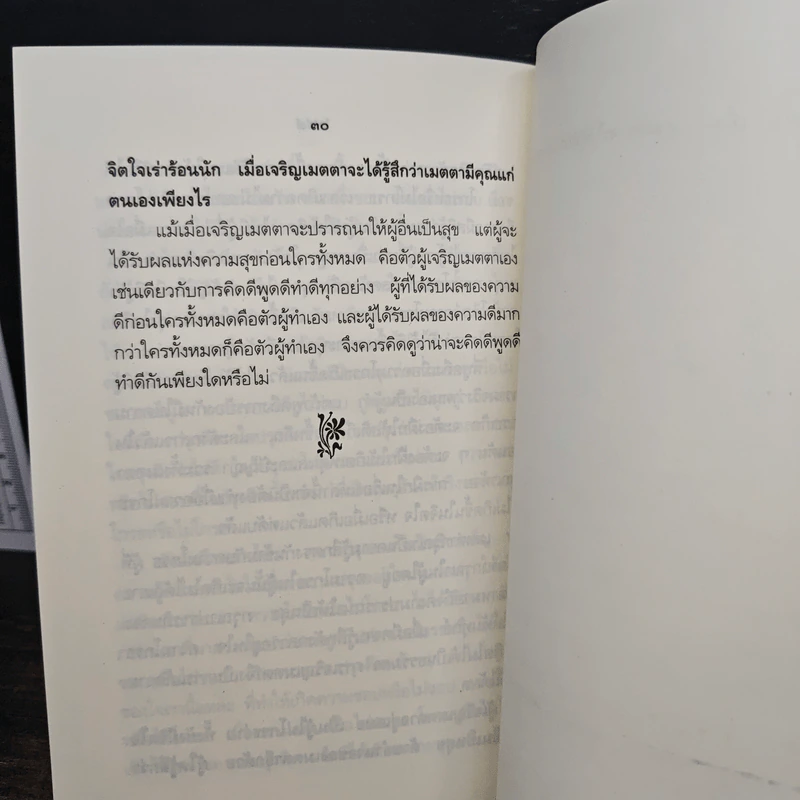 ๓๐
จิตใจเร่าร้อนนัก เมื่อเจริญเมตตาจะได้รู้สึกว่าเมตตามีคุณแก่
ตนเองเพียงไร
แม้เมื่อเจริญเมตตาจะปรารถนาให้ผู้อื่นเป็นสุข แต่ผู้จะ
ได้รับผลแห่งความสุขก่อนใครทั้งหมด คือตัวผู้เจริญเมตตาเอง
เช่นเดียวกับการคิดดีพูดดีทำดีทุกอย่าง ผู้ที่ได้รับผลของความ
ดีก่อนใครทั้งหมดคือตัวผู้ทำเอง และผู้ได้รับผลของความดีมาก
กว่าใครทั้งหมดก็คือตัวผู้ทำเอง จึงควรคิดดูว่าน่าจะคิดดีพูดดี
ทำดีกันเพียงใดหรือไม่